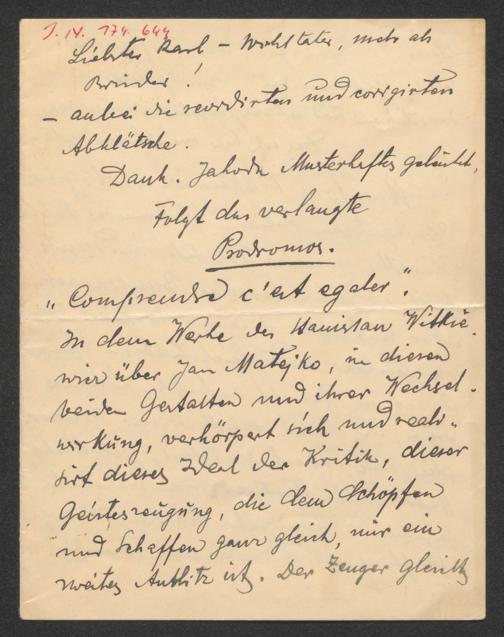 J. N. 174.644
Liebster Karl – Wohltäter, mehr als
Bruder!
– anbei die revidirten und corrigirten
Abklätsche.
Dank. Jahoda Musterhaftes geleistet.
Folgt das verlangte
Prodromos.
„Comprendre c'est egaler".
In dem Werke des Stanislaw Witkie-
wicz über Jan Matejko, in diesen
beiden Gestalten und ihrer Wechsel-
wirkung, verkörpert sich und reali-
sirt dieses Ideal der Kritik, dieser
Geisteszeugung, die dem Schöpfen
und Schaffen ganz gleich, nur ein
zweites Antlitz ist. Der Zeuger gleicht